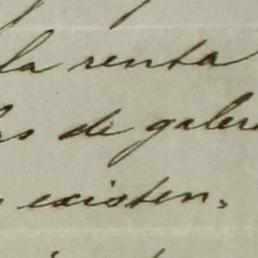 la renta
de galer
existen,